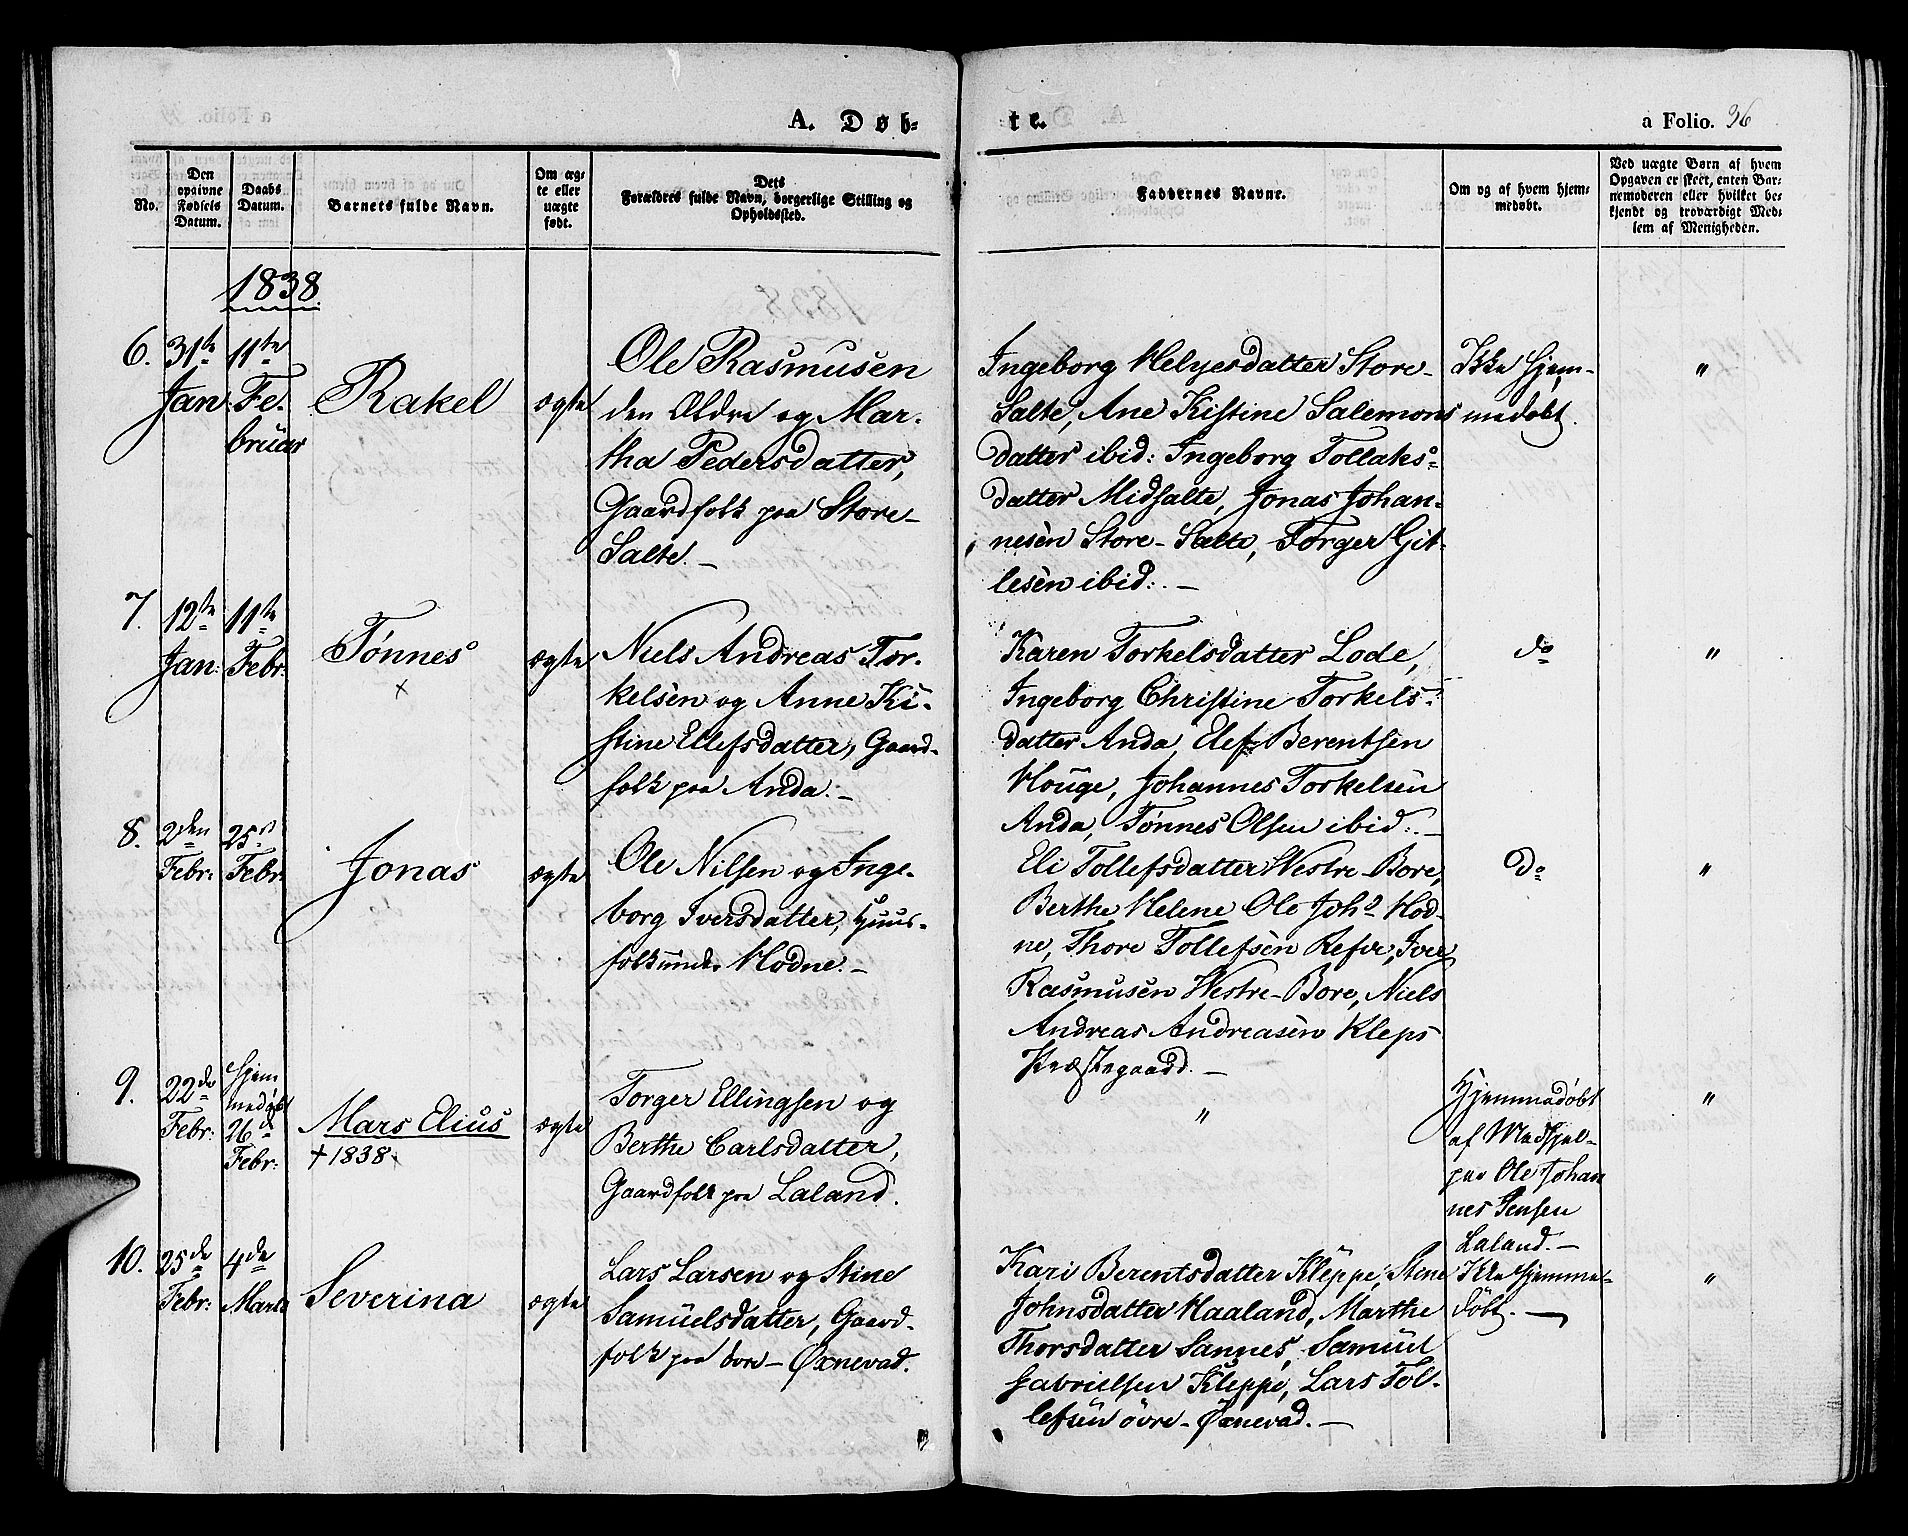 A. Døb-
te.
a Folio. 36
No.
Den
opgivne
Fødsels
Datum.
Daabs
Datum.
Barnets fulde Navn.
Om æg-
te eller
uægte
født.
Dets
Forældres fulde Navn, borgerlige Stilling og
Opholdssted.
Faddernes Navne.
Om og af hvem hjem-
medøbt.
Ved uægte Børn af hvem
Opgaven er skeet, enten Bar-
nemoderen eller hvilket be-
kjendt og troværdigt Med-
lem af Menigheden.
1838.
6.
31te
Jan:
11te
Fe-
bruar
Rakel
ægte
Ole Rasmusen
den Ældre og Mar-
tha Pedersdatter,
Gaardfolk paa Store-
Salte. –
Ingeborg Helgesdatter Store-
Salte, Ane Kistine Salemons
datter ibid: Ingeborg Tollaks-
datter Midsalte, Jonas Johan-
nesen Store-Salte, Torger Git-
lesen ibid: –
Ikke hjem-
medøbt.
"
7.
12te
Jan:
11te
Febr:
Tønnes
x
ægte
Niels Andreas Tor-
kelsen og Anne Ki-
stine Ellefsdatter, Gaard-
folk paa Anda. –
Karen Torkelsdatter Lode,
Ingeborg Christine Torkels-
datter Anda, Elef Berentsen
Houge, Johannes Torkelsen
Anda, Tønnes Olsen ibid: –
do
"
8.
2den
Febr:
25de
Febr:
Jonas
ægte
Ole Nilsen og Inge-
borg Iversdatter, Huus-
folk under Hodne. –
Eli Tollefsdatter Westre-Bore,
Berthe Helene Ole Johs Hod-
ne, Thore Tollefsen Refve, Iver
Rasmusen Westre-Bore, Niels
Andreas Andreasen Kleps
Præstegaard. –
Do
"
9.
22de
Febr:
Hjem
medøbt
26de
Febr:
Mars Elius
+ 1838.
ægte
Torger Ellingsen og
Berthe Carlsdatter,
Gaardfolk paa Laland.
"
Hjemmedøbt
af Medhjel-
per Ole Johan
nes Jensen
Laland. –
"
10.
25de
Febr:
4de
Marts
Severina
ægte
Lars Larsen og Stine
Samuelsdatter, Gaard-
folk paa øvre-Øxnevad.
Kari Berentsdatter Kleppe, Stene
Johnsdatter Haaland, Marthe
Thorsdatter Sannes, Samuel
Gabrielsen Kleppe, Lars Tol-
lefsen øvre-Øxnevad. –
Ikke hjemme-
døbt. –
"